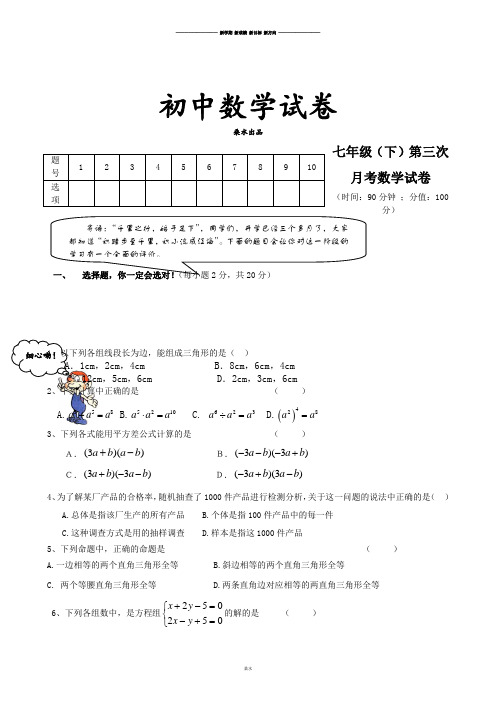 新学期 新成绩 新目标 新方向
初中数学试卷
桑水出品
七年级（下）第三次
月考数学试卷
（时间：90分钟 ；分值：100
分）
题号 1 2 3 4 5 6 7 8 9 10
选项
名语：“千里之行，始于足下”，同学们，开学已经三个多月了，大家
都知道“积跬步至千里，积小流成江海”。下面的题目会让你对这一阶段的
学习有一个全面的评价。
一、 选择题，你一定会选对！（每小题2分，共20分）
细心哟！
以下列各组线段长为边，能组成三角形的是（ ）
A．1cm，2cm，4cm B．8cm，6cm，4cm
12cm，5cm，6cm D．2cm，3cm，6cm
2、下列计算中正确的是 （ ）
B.a⁵·a²=a¹⁰ C. a⁶÷a²=a³ D.(a²)⁴=a⁸
3、下列各式能用平方差公式计算的是 （ ）
A．(3a+b)(a−b) B．(−3a−b)(−3a+b)
C．(3a+b)(−3a−b) D．(−3a+b)(3a−b)
4、为了解某厂产品的合格率，随机抽查了1000件产品进行检测分析，关于这一问题的说法中正确的是（ ）
A.总体是指该厂生产的所有产品 B.个体是指100件产品中的每一件
C.这种调查方式是用的抽样调查 D.样本是指这1000件产品
5、下列命题中，正确的命题是 （ ）
A.一边相等的两个直角三角形全等 B.斜边相等的两个直角三角形全等
C. 两个等腰直角三角形全等 D.两条直角边对应相等的两直角三角形全等
6、下列各组数中，是方程组{x+2y−5=0 2x−y+5=0的解的是 （ ）
桑水